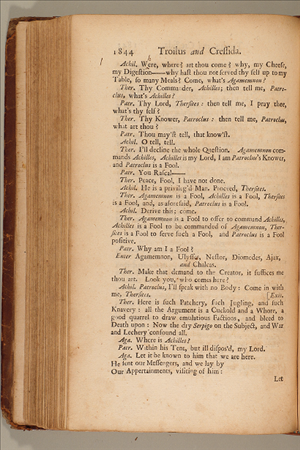 1844 Troilus and Cressida.
Achil. Where, where? art thou come? why, my Cheese,
my Digestion——why hast thou not served thy self up to my
Table, so many Meals? Come, what's Agamemnon?
Ther. Thy Commander, Achilles; then tell me, Patro-
clus, what's Achilles?
Patr. Thy Lord, Thersites: then tell me, I pray thee,
what's thy self?
Ther. Thy Knower, Patroclus: then tell me, Patroclus,
what art thou?
Patr. Thou may'st tell, that know'st.
Achil. O tell, tell.
Ther. I'll decline the whole Question. Agamemnon com-
mands Achilles, Achilles is my Lord, I am Patroclus's Knower,
and Patroclus is a Fool.
Patr. You Rascal——
Ther. Peace, Fool, I have not done.
Achil. He is a privileg'd Man. Proceed, Thersites.
Ther. Agamemnon is a Fool, Achilles is a Fool, Thersites
is a Fool, and, as aforesaid, Patroclus is a Fool.
Achil. Derive this; come.
Ther. Agamemnon is a Fool to offer to command Achilles,
Achilles is a Fool to be commanded of Agamemnon, Ther-
sites is a Fool to serve such a Fool, and Patroclus is a Fool
positive.
Patr. Why am I a Fool?
Enter Agamemnon, Ulysses, Nestor, Diomedes, Ajax,
and Chalcas.
Ther. Make that demand to the Creator, it suffices me
thou art. Look you, who comes here?
Achil. Patroclus, I'll speak with no Body: Come in with
me, Thersites. [Exit.
Ther. Here is such Patchery, such Jugling, and such
Knavery: all the Argument is a Cuckold and a Whore, a
good quarrel to draw emulatious Factions, and bleed to
Death upon: Now the dry Serpigo on the Subject, and War
and Lechery confound all.
Aga. Where is Achilles?
Patr. Within his Tent, but ill dispos'd, my Lord.
Aga. Let it be known to him that we are here.
He sent our Messengers, and we lay by
Our Appertainments, visiting of him:
Let